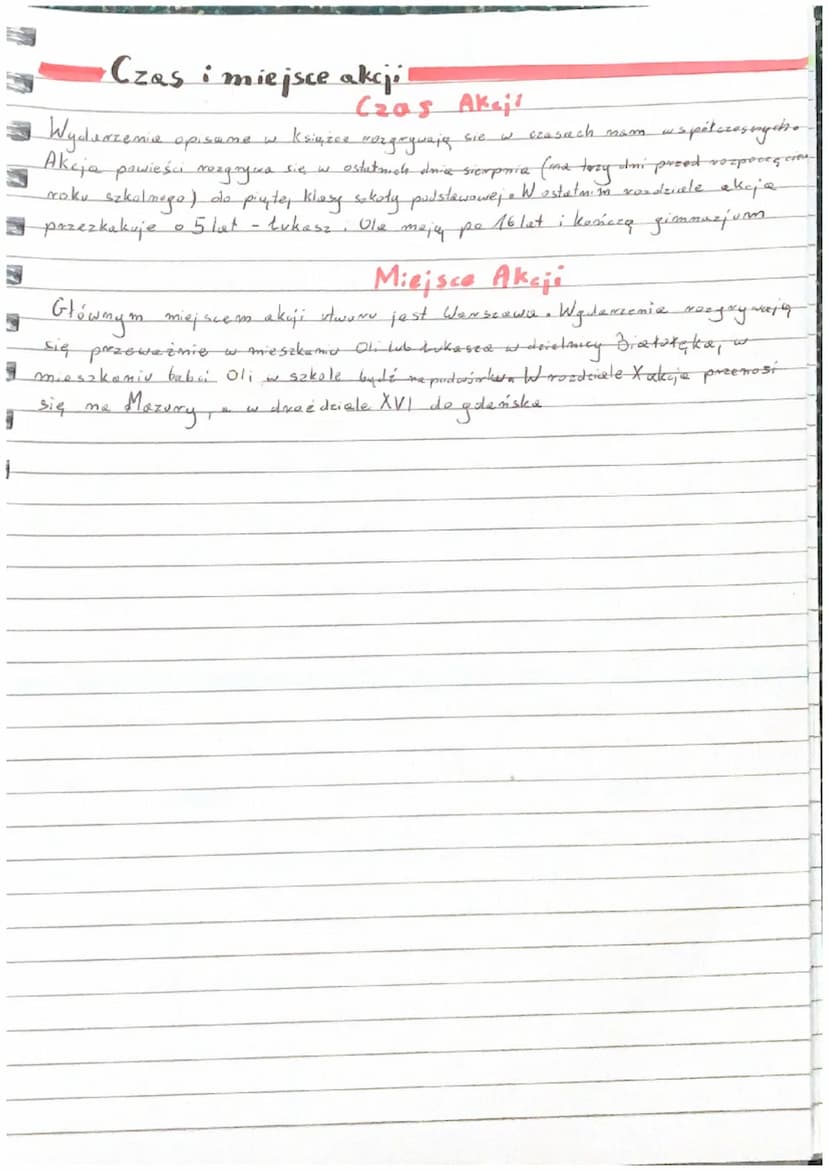 Czas i miejsce akcji
Czas Akcji
Wydarzenia opisane w książce rozgrywają sie w czasach nam współczesnych.
Akcja powieści rozgrywa się w ostatnich dnia sierpnia (na trzy dni przed rozpoczęciem
roku szkolnego) do piątej klasy szkoły podstawowej. W ostatnim rozdziale akcja
przezkakuje o 5 lat - Łukasz i Ola mają po 16 lat i kończą gimnazjum
Miejsce Akcji
Głównym miejscem akcji utworu jest Warszawa. Wydarzenia rozgrywają
się przeważnie w mieszkaniu Oli lub Łukasza w dzielnicy Białołęka, w
mieszkaniu babci Oli w szkole bydź na podwórku. W rozdziale X akcja przenosi
się na Mazury, a w XVI do gdańska